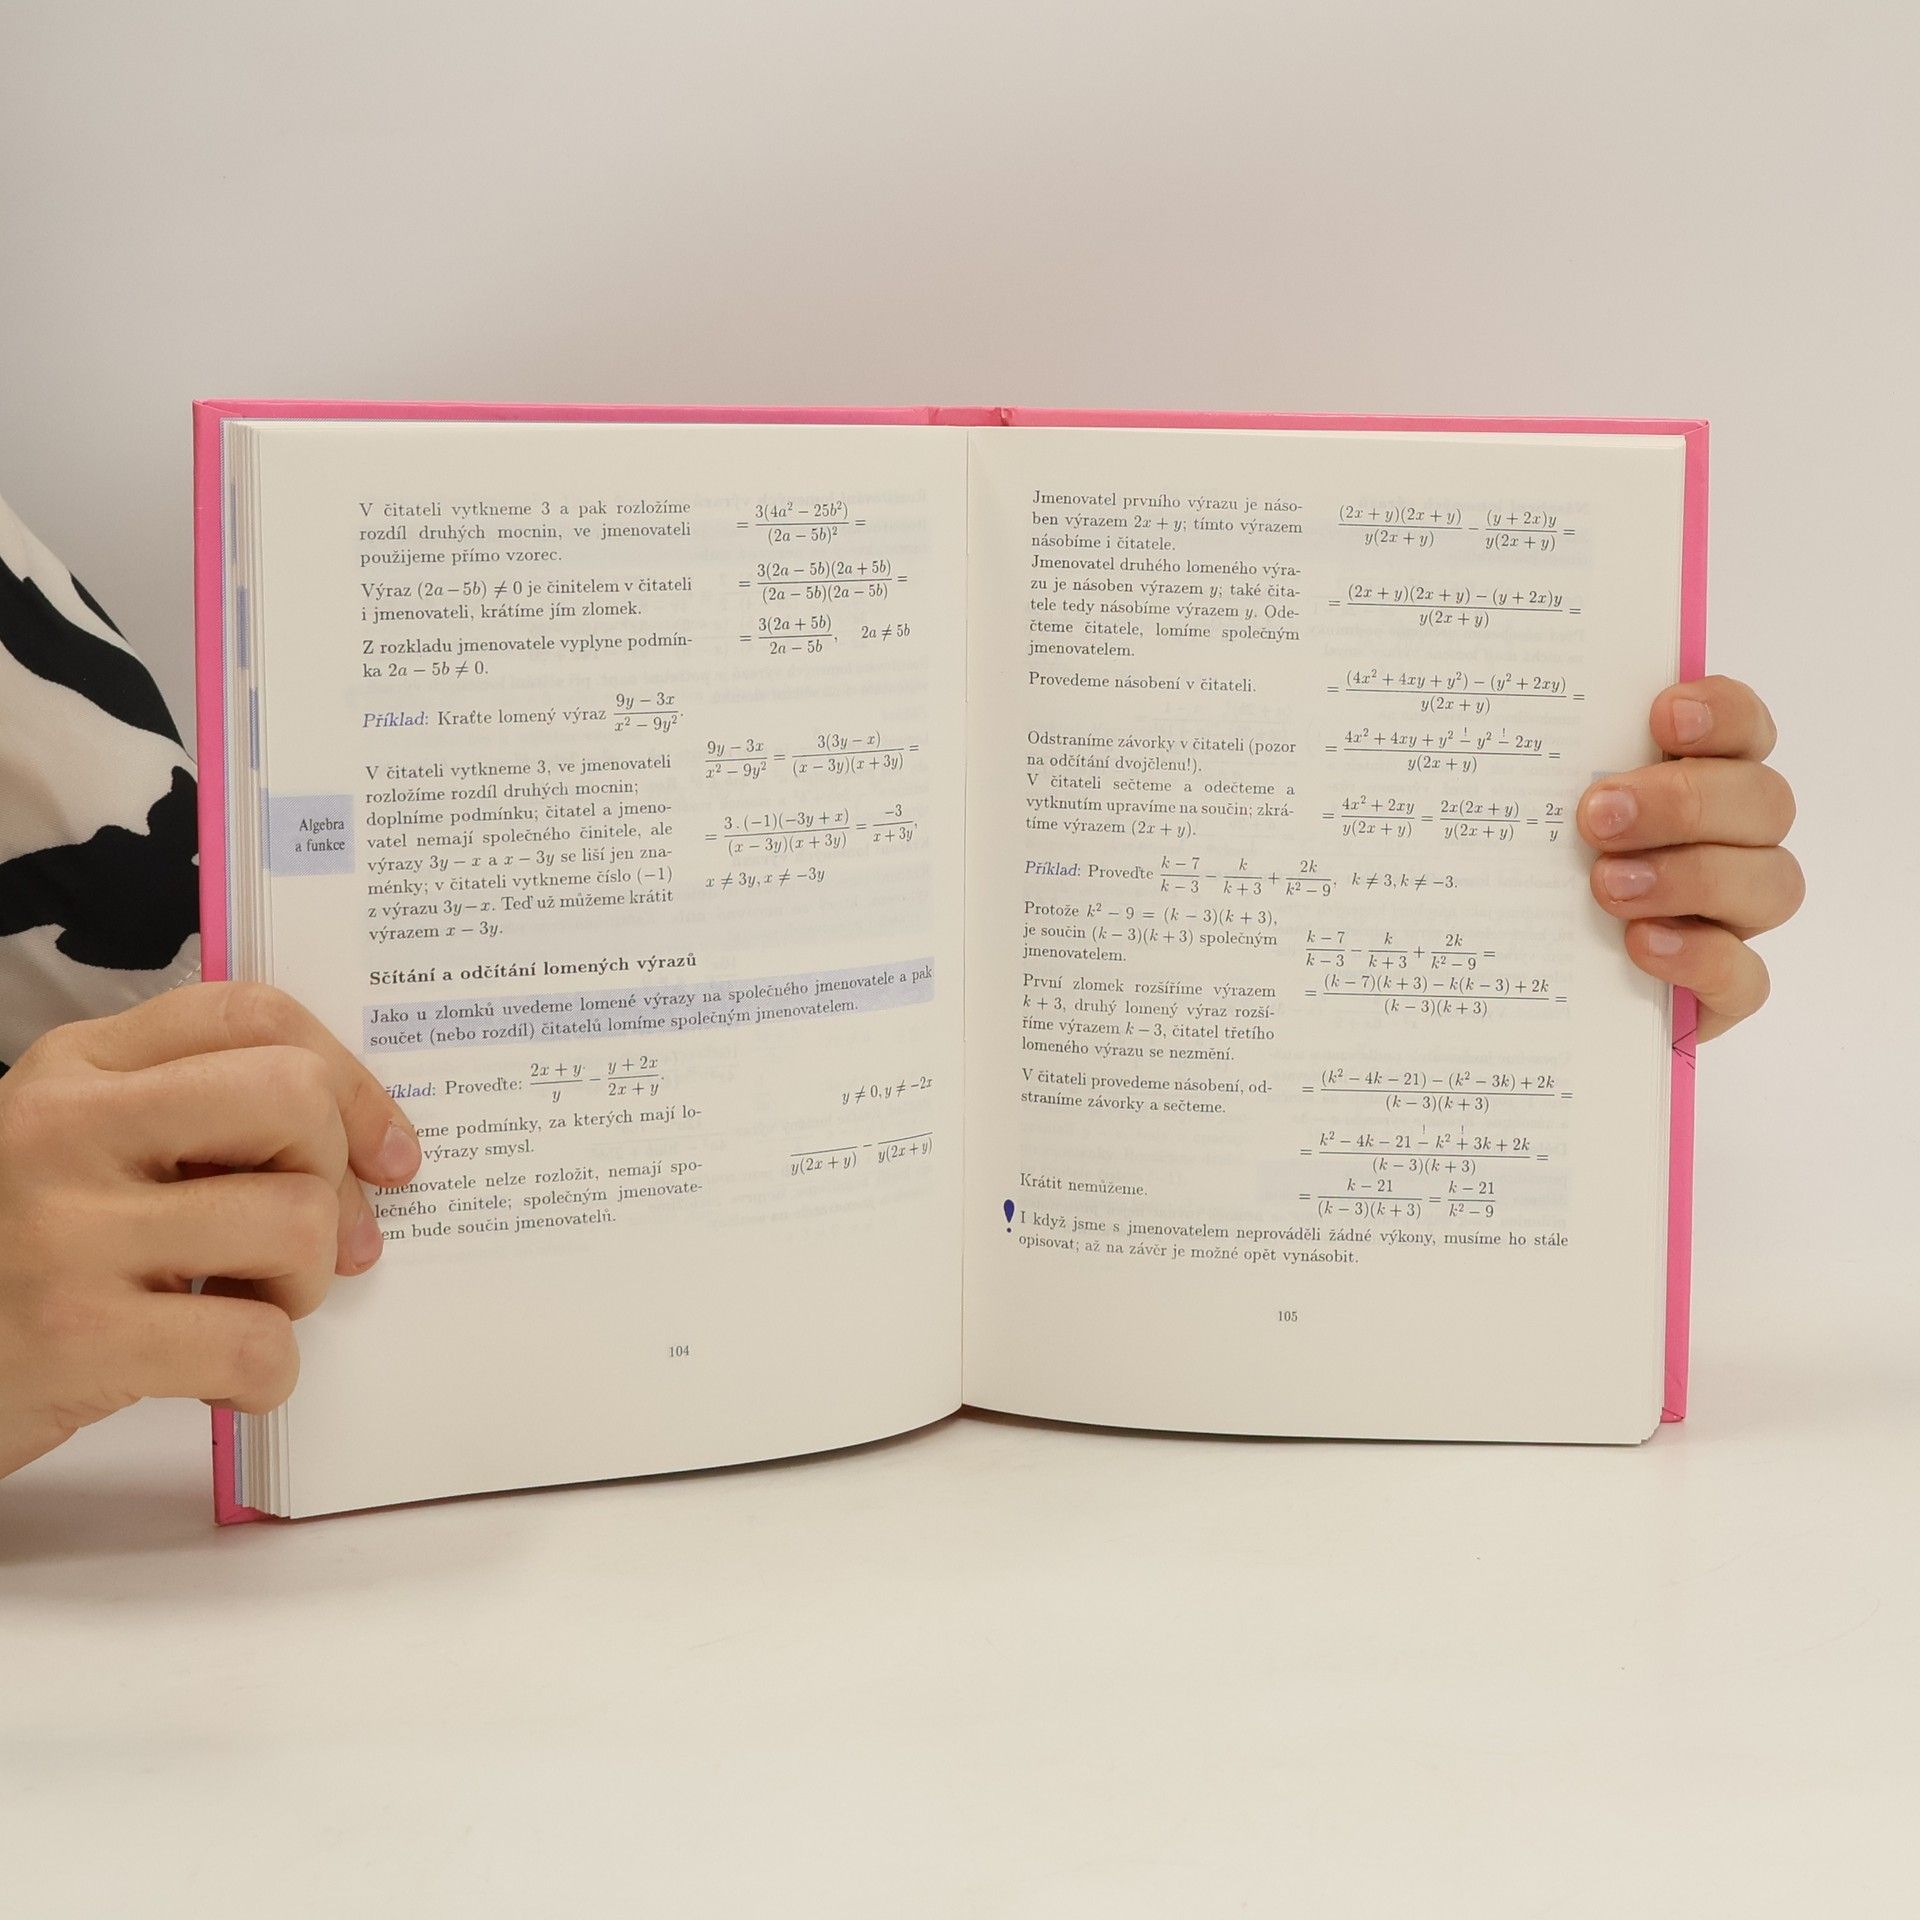 V čitateli vytkneme 3 a pak rozložíme
rozdíl druhých mocnin, ve jmenovateli
použijeme přímo vzorec.
= 3(4a² − 25b²)/(2a − 5b)² =
Výraz (2a − 5b) ≠ 0 je činitelem v čitateli
i jmenovateli, krátíme jím zlomek.
= 3(2a − 5b)(2a + 5b)/(2a − 5b)(2a − 5b) =
Z rozkladu jmenovatele vyplyne podmín-
ka 2a − 5b ≠ 0.
= 3(2a + 5b)/2a − 5b, 2a ≠ 5b
Příklad: Kraťte lomený výraz 9y − 3x/x² − 9y².
V čitateli vytkneme 3, ve jmenovateli
rozložíme rozdíl druhých mocnin;
doplníme podmínku; čitatel a jmeno-
vatel nemají společného činitele, ale
výrazy 3y − x a x − 3y se liší jen zna-
ménky; v čitateli vytkneme číslo (−1)
z výrazu 3y − x. Teď už můžeme krátit
výrazem x − 3y.
9y − 3x/x² − 9y² = 3(3y − x)/(x − 3y)(x + 3y) =
= 3 . (−1)(−3y + x)/(x − 3y)(x + 3y) = −3/x + 3y,
x ≠ 3y, x ≠ −3y
Algebra
a funkce
Sčítání a odčítání lomených výrazů
Jako u zlomků uvedeme lomené výrazy na společného jmenovatele a pak
součet (nebo rozdíl) čitatelů lomíme společným jmenovatelem.
íklad: Proveďte: 2x + y/y − y + 2x/2x + y.
eme podmínky, za kterých mají lo-
výrazy smysl.
y ≠ 0, y ≠ −2x
Jmenovatele nelze rozložit, nemají spo-
lečného činitele; společným jmenovate-
em bude součin jmenovatelů.
/y(2x + y) − /y(2x + y)
104
Jmenovatel prvního výrazu je náso-
ben výrazem 2x + y; tímto výrazem
násobíme i čitatele.
(2x + y)(2x + y)/y(2x + y) − (y + 2x)y/y(2x + y) =
Jmenovatel druhého lomeného výra-
zu je násoben výrazem y; také čita-
tele tedy násobíme výrazem y. Ode-
čteme čitatele, lomíme společným
jmenovatelem.
= (2x + y)(2x + y) − (y + 2x)y/y(2x + y) =
Provedeme násobení v čitateli.
= (4x² + 4xy + y²) − (y² + 2xy)/y(2x + y) =
Odstraníme závorky v čitateli (pozor
na odčítání dvojčlenu!).
! !
= 4x² + 4xy + y² − y² − 2xy/y(2x + y) =
V čitateli sečteme a odečteme a
vytknutím upravíme na součin; zkrá-
tíme výrazem (2x + y).
= 4x² + 2xy/y(2x + y) = 2x(2x + y)/y(2x + y) = 2x/y
Příklad: Proveďte k − 7/k − 3 − k/k + 3 + 2k/k² − 9, k ≠ 3, k ≠ −3.
Protože k² − 9 = (k − 3)(k + 3),
je součin (k − 3)(k + 3) společným
jmenovatelem.
k − 7/k − 3 − k/k + 3 + 2k/k² − 9 =
První zlomek rozšíříme výrazem
k + 3, druhý lomený výraz rozší-
říme výrazem k − 3, čitatel třetího
lomeného výrazu se nezmění.
= (k − 7)(k + 3) − k(k − 3) + 2k/(k − 3)(k + 3) =
V čitateli provedeme násobení, od-
straníme závorky a sečteme.
= (k² − 4k − 21) − (k² − 3k) + 2k/(k − 3)(k + 3) =
! !
= k² − 4k − 21 − k² + 3k + 2k/(k − 3)(k + 3) =
Krátit nemůžeme.
= k − 21/(k − 3)(k + 3) = k − 21/k² − 9
! I když jsme s jmenovatelem neprováděli žádné výkony, musíme ho stále
opisovat; až na závěr je možné opět vynásobit.
105